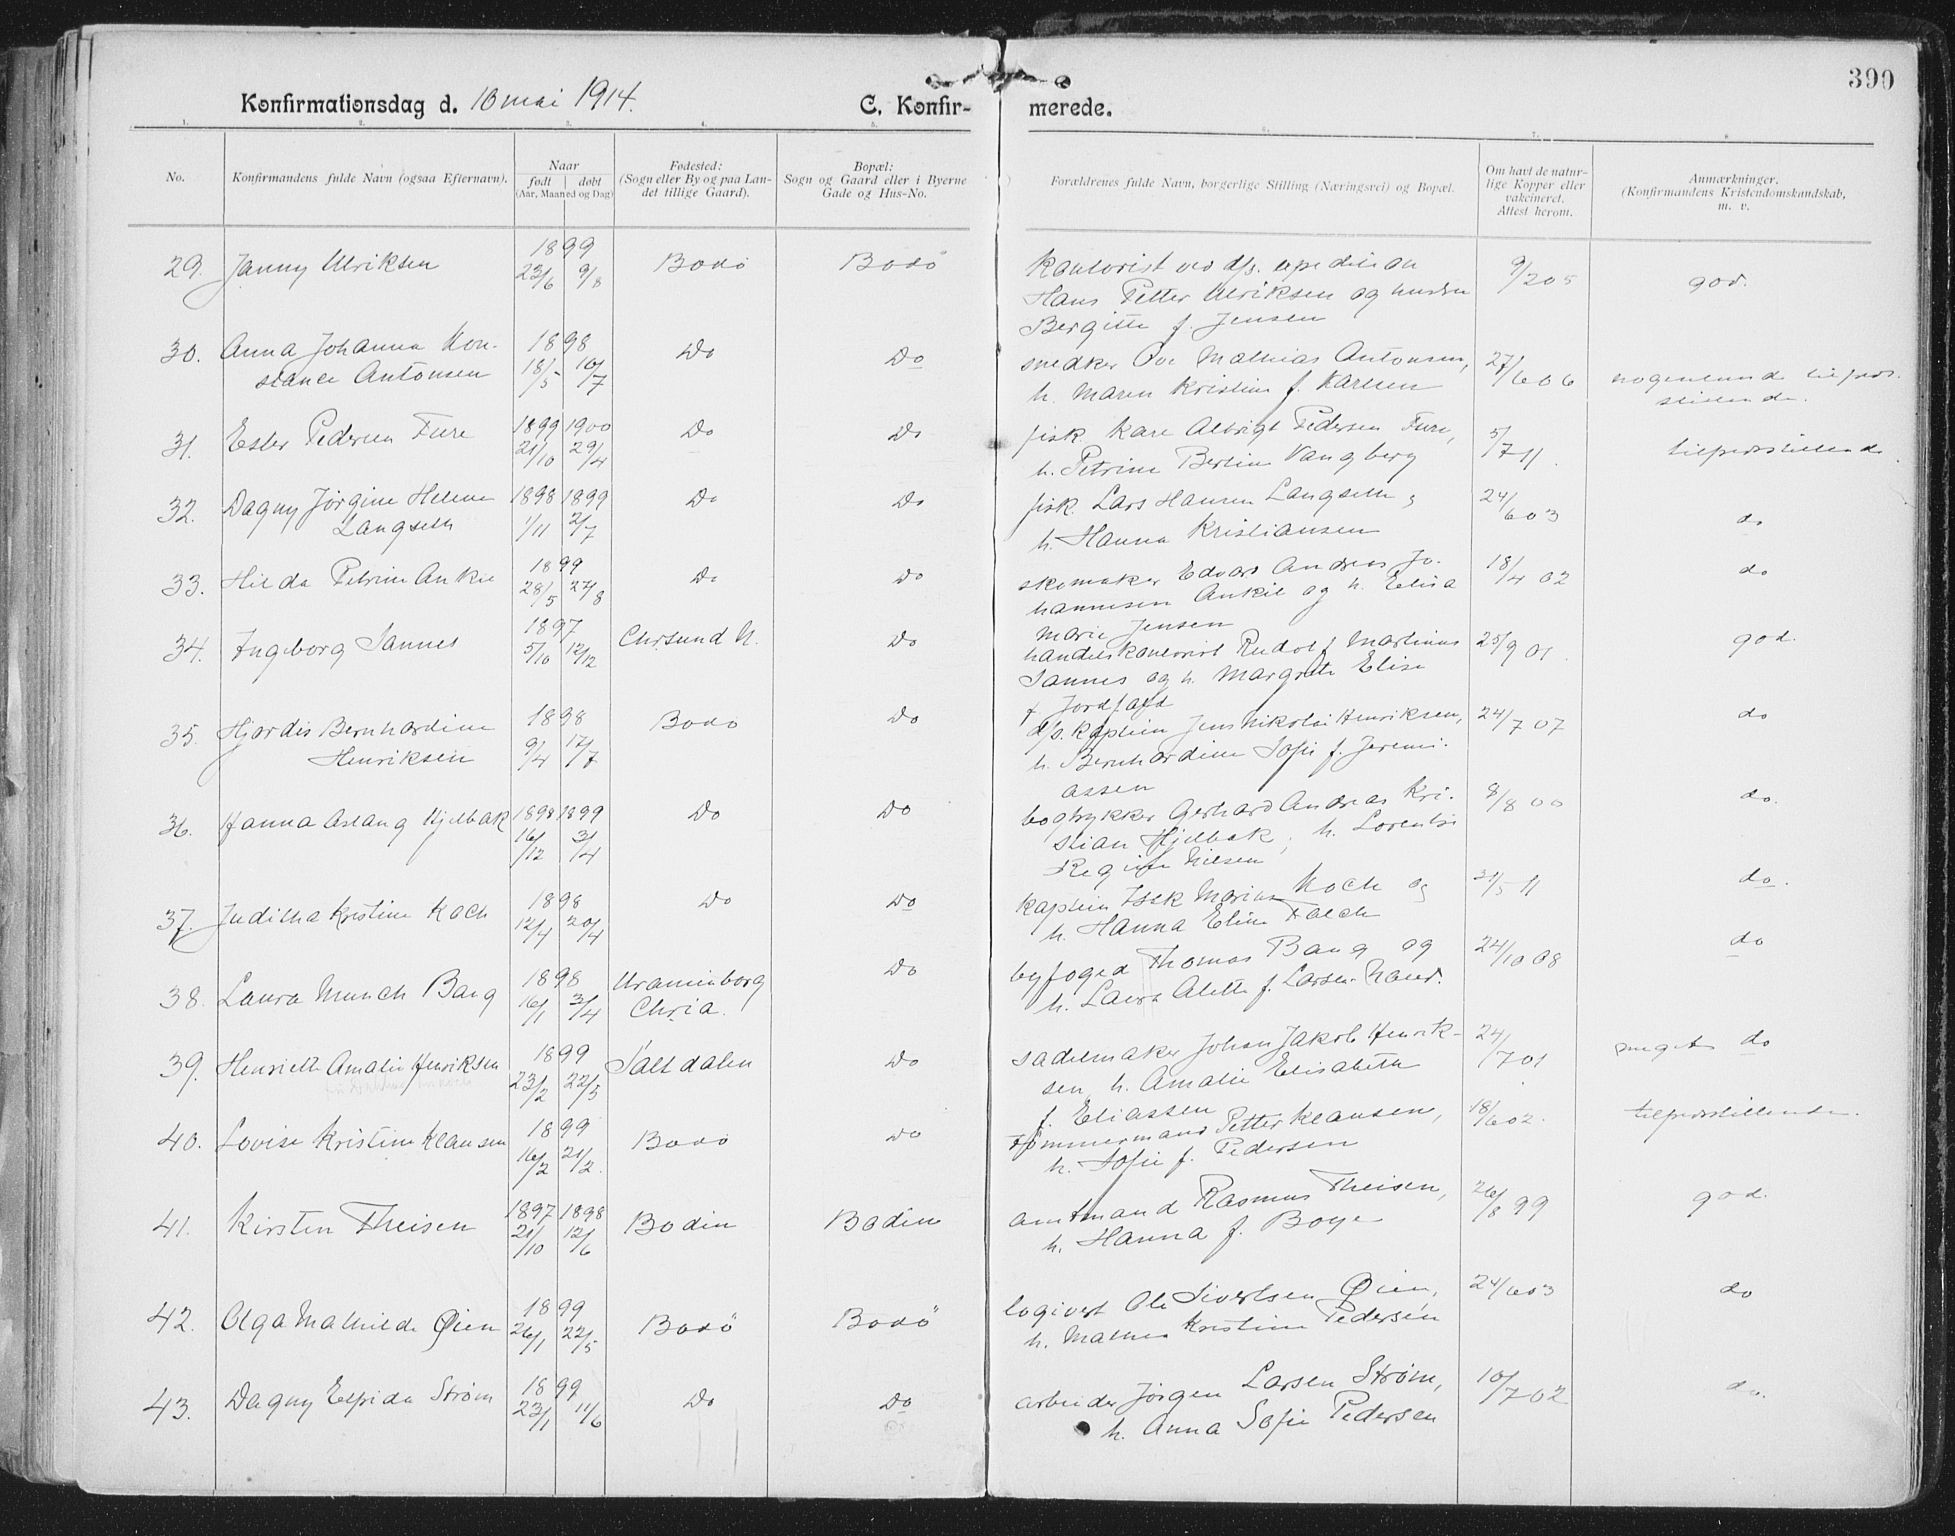 390
Konfirmationsdag d. 10 mai 1914.
C. Konfir-
merede.
1. 2. 3. 4. 5. 6. 7. 8.
No.
Konfirmandens fulde Navn (ogsaa Efternavn).
Naar
født
døbt
(Aar, Maaned og Dag)
Fødested:
(Sogn eller By og paa Lan-
det tillige Gaard).
Bopæl:
Sogn og Gaard eller i Byerne
Gade og Hus-No.
Forældrenes fulde Navn, borgerlige Stilling (Næringsvei) og Bopæl.
Om havt de natur-
lige Kopper eller
vakcineret.
Attest herom.
Anmærkninger.
(Konfirmandens Kristendomskundskab,
m. v.
29. Janny Ulriksen 1899 23/6 9/8 Bodö Bodö
kontorist ved d/s. expedition
Hans Petter Ulriksen og hustru
Bergitte f. Jensen
9/2 05 god.
30. Anna Johanna Kon-
stance Antonsen 1898 18/5 10/7 Do Do
snedker Ove Mathias Antonsen,
h. Maren Kristine f. Karlsen
27/6 06 nogenlunde tilfreds-
stillende.
31. Ester Pedersen Fure 1899 21/10 1900 29/4 Do Do
fisk. Kare Albrigt Pedersen Fure,
h. Petrine Bertine Vangberg
5/7 11. tilfredsstillende
32. Dagny Jørgine Helene
Langseth 1898 1/11 1899 2/7 Do Do
fisk. Lars Hansen Langseth,
h. Hanna Kristiansen
24/6 03 do
33. Hilda Petrine Ankile 1899 28/5 27/8 Do Do
skomaker Edvard Andreas Jo-
hannesen Ankile og h. Elisa
Marie Jensen
18/4 02 do
34. Ingeborg Sannes 1897 5/10 12/12 Chrsund N. Do
handelskontorist Rudolf Martinius
Sannes og h. Margrete Elise
f. Jordfald
25/9 01. god.
35. Hjørdis Bernhardine
Henriksen 1898 9/4 17/7 Bodö Do
d/s. kaptein Jens Nikolai Henriksen,
h. Bernhardine Sofie f. Jeremi-
assen
24/7 07 do
36. Hanna Aslaug Hjelbak 1898 16/12 1899 3/4 Do Do
bogtrykker Gerhard Andreas Kri-
stian Hjelbak, h. Lorentse
Regine Nilsen
8/8 00 do.
37. Juditha Kristine Koch 1898 12/4 20/4 Do Do
kaptein Isak Marius Koch og
h. Hanna Eline Falch
21/5 11 do.
38. Laura Munch Bang 1898 16/1 3/4 Uranienborg
Chria. Do
byfoged Thomas Bang og
h. Laura Alette f. Larsen-Naur.
24/10 08 do
39. Henriette Amalie Henriksen 1899 23/2 22/5 Saltdalen Do
sadelmaker Johan Jakob Henrik-
sen, h. Amalie Elisabeth
f. Eliassen
24/7 01 meget do
40. Lovise Kristine Klausen 1899 16/2 21/2. Bodö Do
tømmermand Petter Klausen,
h. Sofie f. Pedersen
18/6 02. tilfredsstillende.
41. Kirsten Theisen 1897 21/10 1898 12/6 Bodin Bodin
amtmand Rasmus Theisen,
h. Hanna f. Boye
26/8 99 god.
42. Olga Mathilde Øien 1899 26/1 22/5 Bodö Bodö
logivert Ole Sivertsen Øien,
h. Kristine Pedersen
24/6 03 do
43. Dagny Elfrida Strøm 1899 23/1 11/6 Do Do
arbeider Jörgen Larsen Strøm,
h. Anna Sofie Pedersen
10/7 02 do.